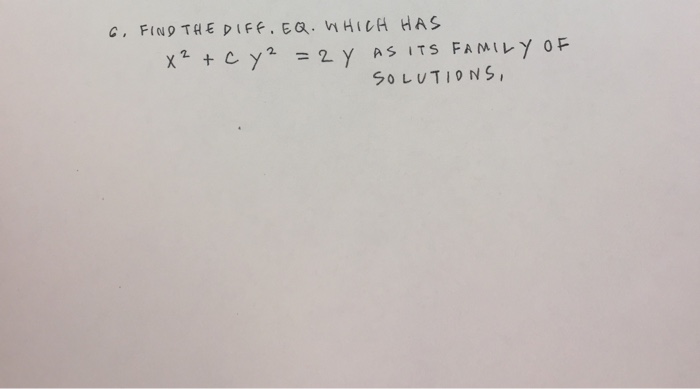 6. FIND THE DIFF. EQ. WHICH HAS
x² + c y² = 2 y AS ITS FAMILY OF
SOLUTIONS.